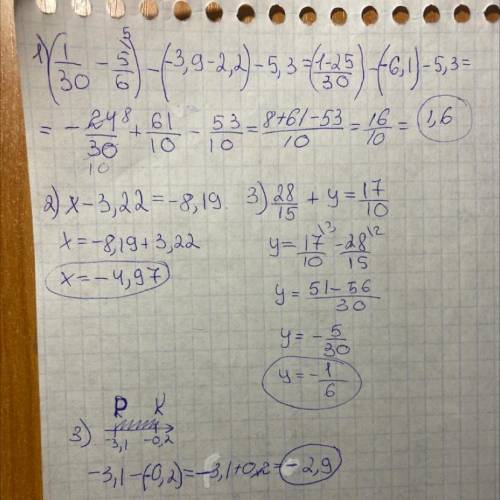 1) (1/30 - 5/6\5) - (-3,9-2,2) - 5,3 = (1-25/30) - (-6,1) - 5,3 =
= - 24 8/30 10 + 61/10 - 53/10 = 8+61-53/10 = 16/10 = 1,6
2) x-3,22=-8,19
x=-8,19+3,22
x=-4,97
3) 28/15 + y = 17/10
y= 17\3/10 - 28\2/15
y= 51-56/30
y= - 5/30
y= - 1/6
P K
3) -3,1 -0,2
-3,1-(-0,2)=-3,1+0,2=-2,9